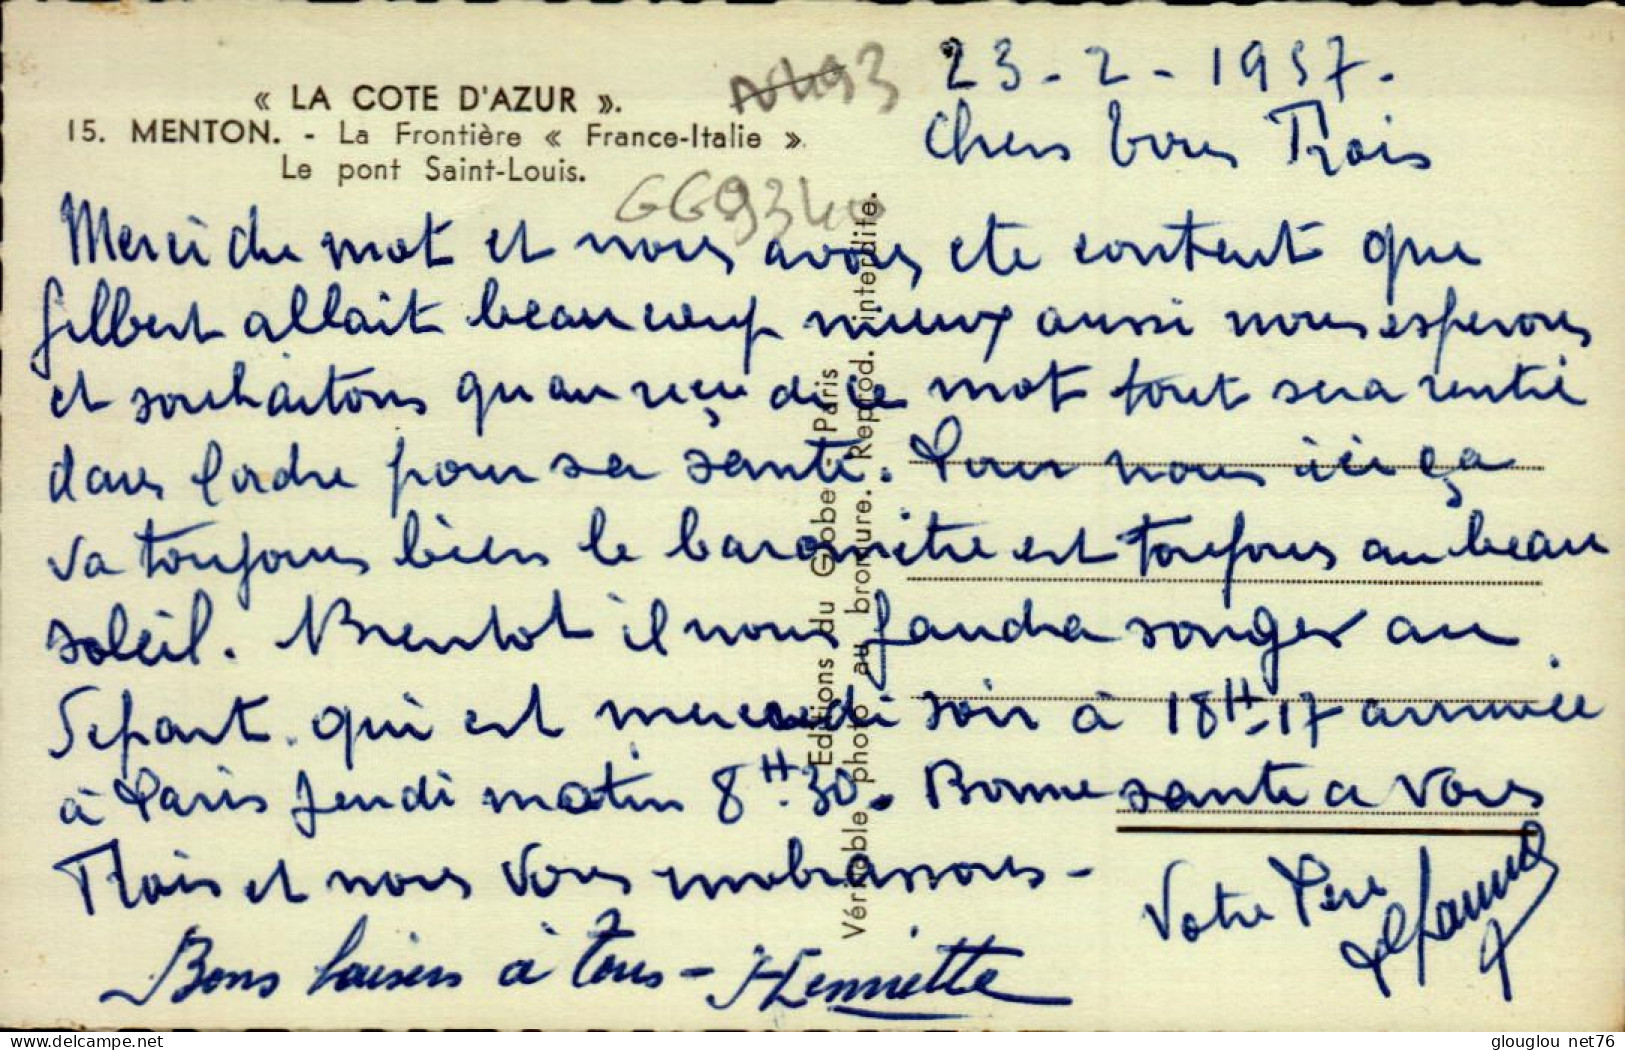 « LA COTE D'AZUR ».
15. MENTON. - La Frontière « France-Italie ».
Le pont Saint-Louis.
GG9340
23-2-1957.
Chers vous Trois
Merci du mot et nous avons ete content que
Gilbert allait beaucoup mieux aussi nous esperons
et souhaitons qu'au reçu de ce mot tout sera rentré
dans l'ordre pour sa santé. Pour nous ici ça
va toujours bien le baromètre est toujours au beau
soleil. Bientot il nous faudra songer au
Depart qui est mercredi soir à 18H-17 arrivée
à Paris Jeudi matin 8H.30. Bonne santé a Vous
Trois et nous Vous embrassons -
Votre Père
Bons baisers à tous - Henriette
Editions du Globe - Paris
Véritable photo au bromure. Reprod. interdite.
delcampe.net
glouglou net76